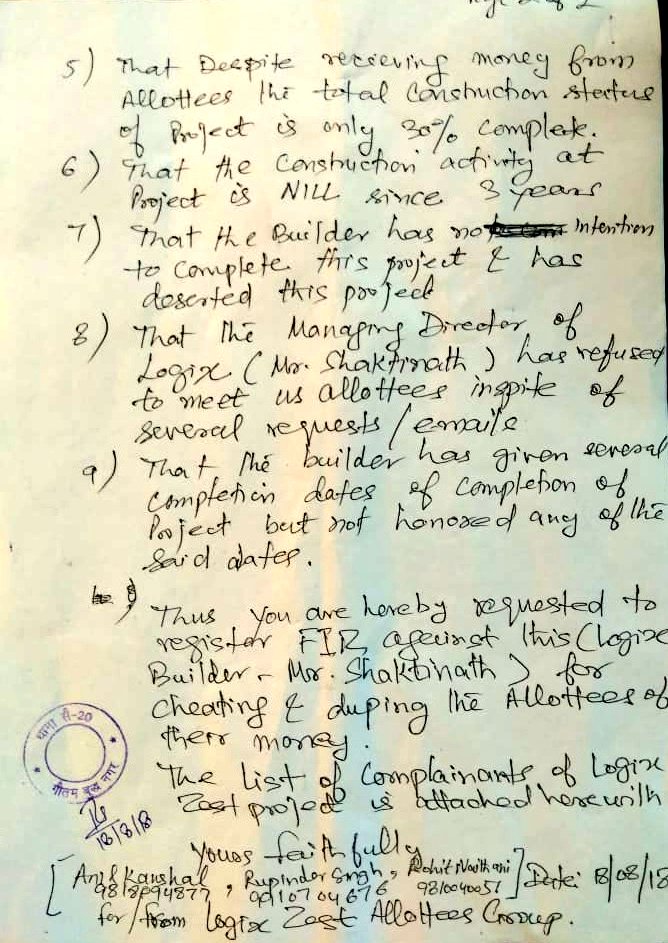 5) That Despite recieving money from
Allottees the total Construction status
of Project is only 30% complete.
6) That the Construction activity at
Project is NILL since 3 years
7) That the Builder has no Intention
to complete this project & has
deserted this project
8) That the Managing Director of
Logix (Mr. Shaktinath) has refused
to meet us allottees inspite of
several requests / emails
9) That the builder has given several
completion dates of Completion of
Project but not honored any of the
said dates.
Thus you are hereby requested to
register FIR against this (Logix
Builder - Mr. Shaktinath) for
cheating & duping the Allottees of
their money.
The List of Complainants of Logix
Zest project is attached herewith
थाना सै-20
गौतम बुद्ध नगर
18/8/18
Yours faithfully
[Anil Kaushal, Rupinder Singh, Rohit Naithani] Date: 18/08/18
9818694877 9910704676 9810040051
for/from Logix Zest Allottees Group.